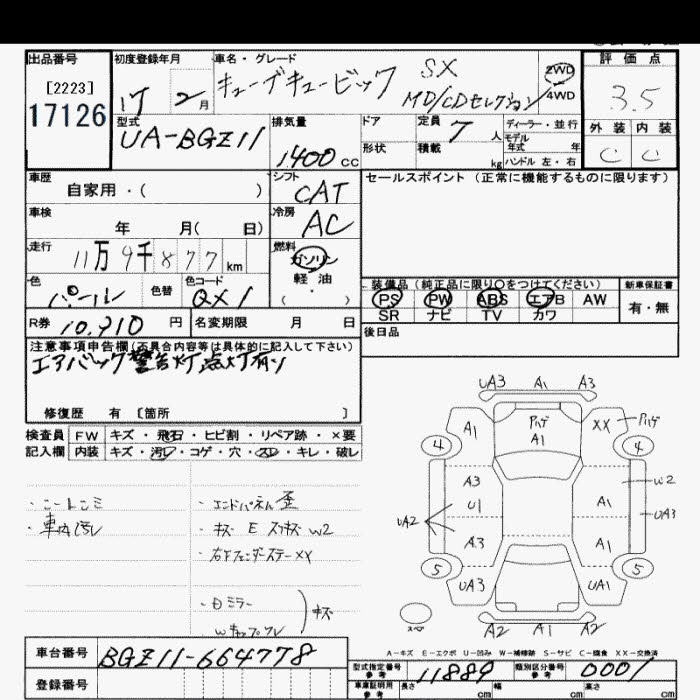 出品番号
[2223]
17126
初度登録年月
17 2月
車名・グレード
キューブキュービック SX
MD/CDセレクション
2WD
4WD
評価点
3.5
外装 内装
C C
型式
UA-BGZ11
排気量
1400cc
ドア
形状
定員 7人
積載 kg
ディーラー・並行
モデル年式 年
ハンドル 左・右
車歴
自家用・( )
シフト
CAT
セールスポイント(正常に機能するものに限ります)
車検
年 月( 日)
冷房
AC
走行
11万9千877km
燃料
ガソリン
軽油
( ・ )
色
パール
色替
色コード
QX1
装備品(純正品に限り○をつけてください)
PS PW ABS エアB AW
SR ナビ TV カワ
新車保証書
有・無
R券 10,910円
名変期限 月 日
後日品
注意事項申告欄(不具合内容等は具体的に記入して下さい)
エアバック警告灯点灯有り
修復歴 有 [箇所 ]
検査員
記入欄
FW キズ・飛石・ヒビ割・リペア跡・×要
内装 キズ・汚レ・コゲ・穴・スレ・キレ・破レ
・車内汚レ
・エンドパネル歪
・キズ E スリキズ W2
・右Fフェンダーステー XX
キズ
UA3 A1 A3
A1
ハゲ
A1
XX
ハゲ
4 4
A3
U1
A3
UA2
W2
A1
UA3
A1
5 5
UA3 UA1
A2 A1 A2
A-キズ E-エクボ U-凹み W-補修跡 S-サビ C-腐食 XX-交換済
車台番号
BGZ11-664778
登録番号
型式指定番号
参考
11889
類別区分番号
参考
0001
車庫証明用
参考
長さ cm 幅 cm 高さ cm